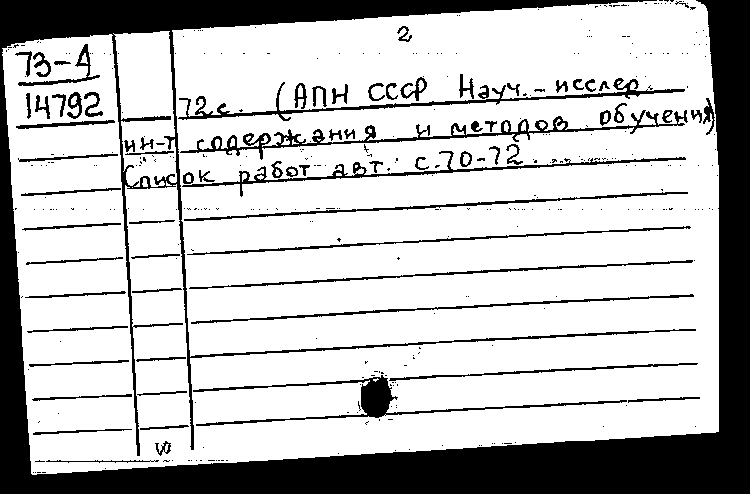 2
73-4
14792
72 с. (АПН СССР Науч.-исслед.
ин-т содержания и методов обучения)
Список работ авт.: с. 70-72.